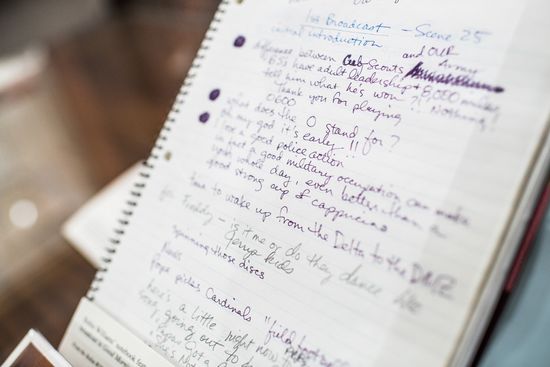 1st Broadcast - Scene 25
initial introduction
Difference between Cub Scouts and OUR Army
BSS have adult leadership + 8,000 military
tell him what he's won ?! Nothing!
Thank you for playing
0600
What does the O stand for?
oh my god it's early!!
love a good police action
in fact a good military occupation can make
your whole day, even better than a
good strong cup of cappuccino
Time to wake up from the Delta to the DMZ
for Freddy - is it me or do they dance like
Jerry's kids
Spinning those discs
News
Pope picks Cardinals "field
here's a little right now to
going out to